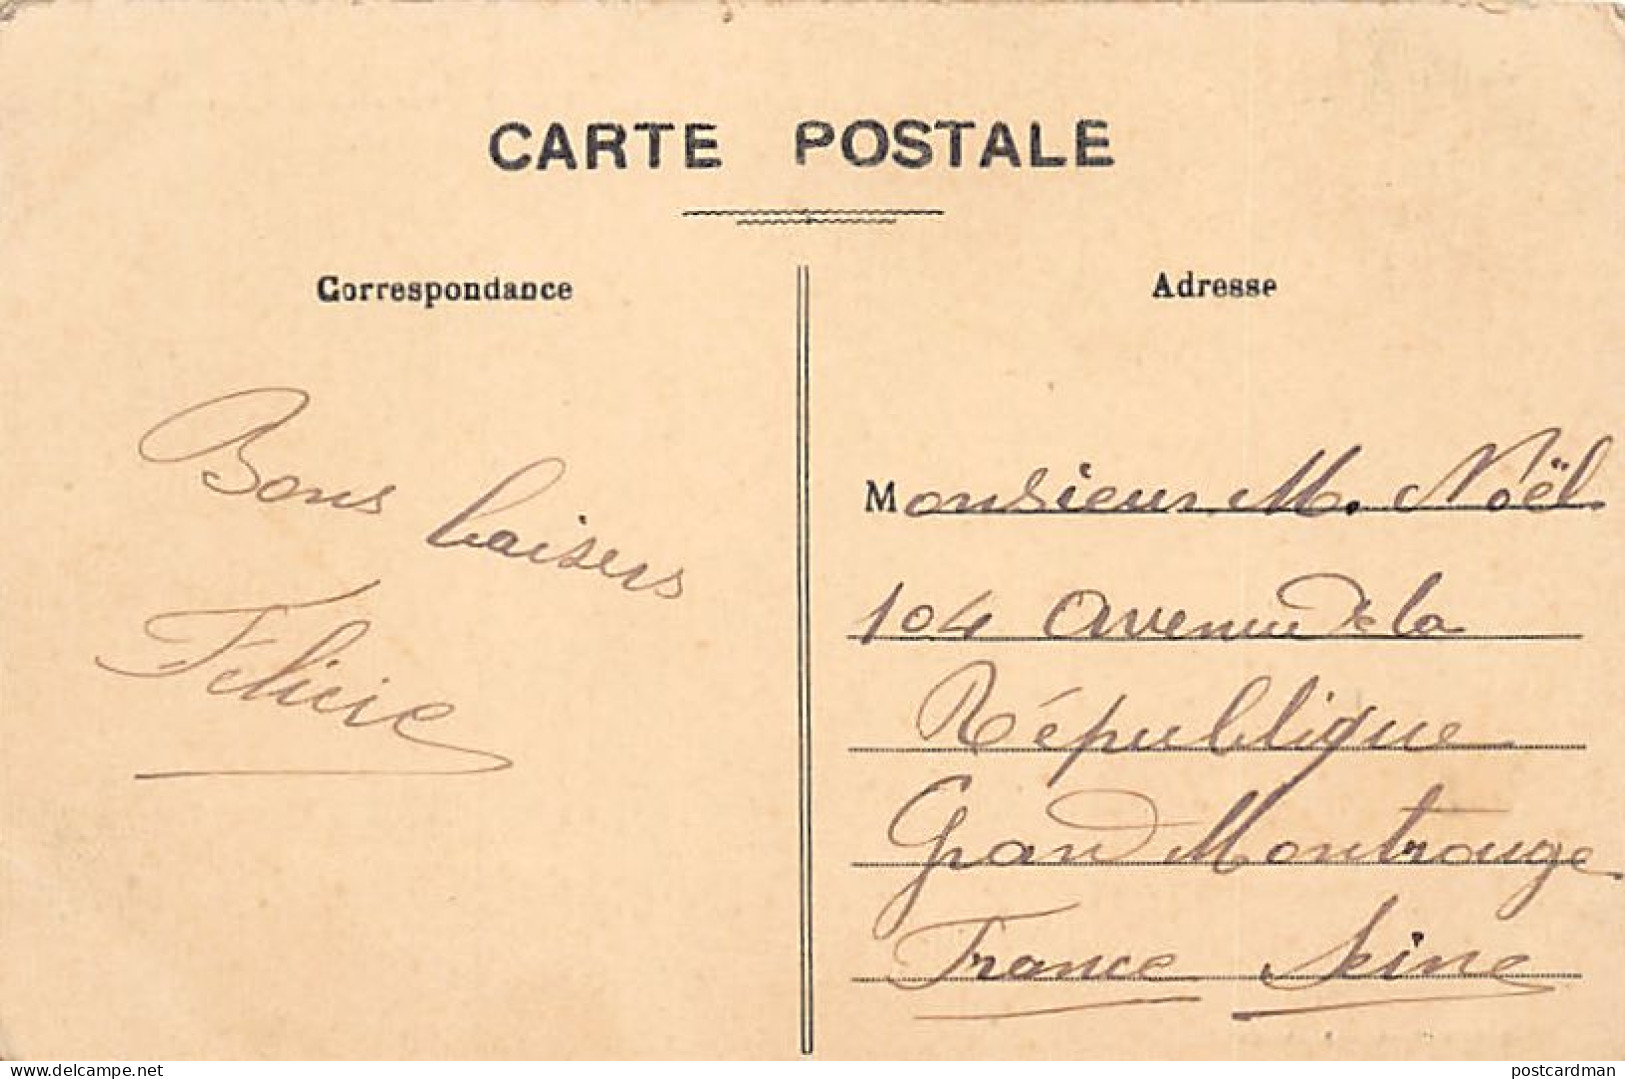 CARTE POSTALE
Correspondance
Bons baisers
Félicie
Adresse
Monsieur M. Noël
104 Avenue de la
République
Grand Montrouge
France Seine
delcampe.net
postcardman